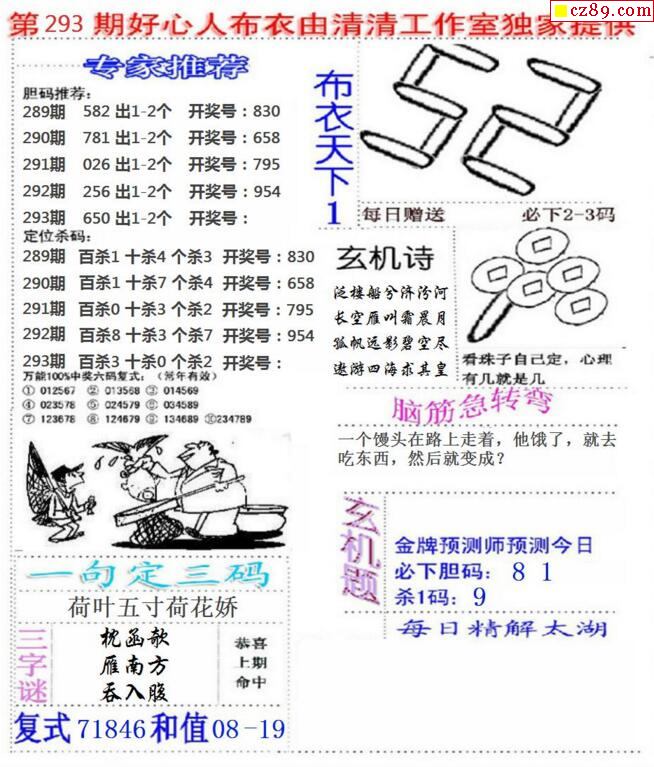 第293期好心人布衣由清清工作室独家提供
cz89.com
专家推荐
胆码推荐：
289期 582 出1-2个 开奖号：830
290期 781 出1-2个 开奖号：658
291期 026 出1-2个 开奖号：795
292期 256 出1-2个 开奖号：954
293期 650 出1-2个 开奖号：
定位杀码：
289期 百杀1 十杀4 个杀3 开奖号：830
290期 百杀1 十杀7 个杀4 开奖号：658
291期 百杀0 十杀3 个杀2 开奖号：795
292期 百杀8 十杀3 个杀7 开奖号：954
293期 百杀3 十杀0 个杀2 开奖号：
万能100%中奖六码复式：（常年有效）
① 012567 ② 013568 ③ 014569
④ 023578 ⑤ 024579 ⑥ 034589
⑦ 123678 ⑧ 124679 ⑨ 134689 ⑩234789
一句定三码
荷叶五寸荷花娇
三字谜
枕函欹
雁南方
吞入腹
恭喜
上期
命中
复式71846和值08-19
布衣天下1
52
每日赠送 必下2-3码
玄机诗
泛楼船兮济汾河
长空雁叫霜晨月
孤帆远影碧空尽
遨游四海求其皇
看珠子自己定，心理
有几就是几
脑筋急转弯
一个馒头在路上走着，他饿了，就去
吃东西，然后就变成？
玄机题
金牌预测师预测今日
必下胆码：8 1
杀1码：9
每日精解太湖